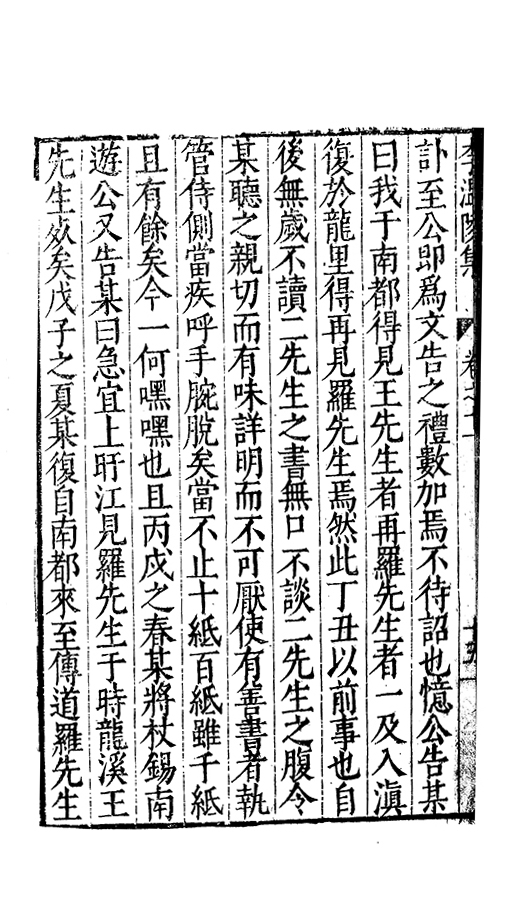 李溫陵集 卷之十一
訃至公即爲文告之禮數加焉不待詔也憶公告某
曰我于南都得見王先生者再羅先生者一及入滇
復於龍里得再見羅先生焉然此丁丑以前事也自
後無歲不讀二先生之書無口不談二先生之腹令
某聽之親切而有味詳明而不可厭使有善書者執
管侍側當疾呼手腕脫矣當不止十紙百紙雖千紙
且有餘矣今一何嘿嘿也且丙戌之春某將杖錫南
遊公又告某曰急宜上盱江見羅先生于時龍溪王
先生死矣戊子之夏某復自南都來至傳道羅先生